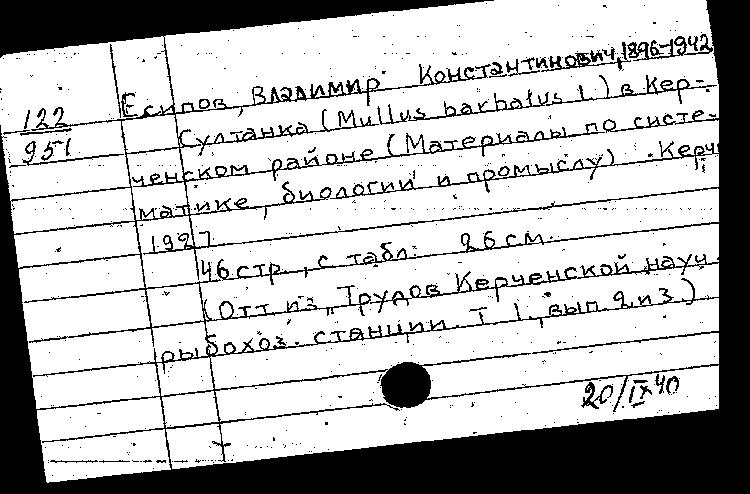 122
951
Есипов, Владимир Константинович, 1896-1942
Султанка (Mullus barbatus L.) в Кер-
ченском районе (Материалы по систе-
матике, биологии и промыслу). Керчь
1927
46 стр., с табл. 26 см.
(Отт. из „Трудов Керченской науч.
рыбохоз. станции. Т. I., вып. 2 и 3.)
20/IX 40